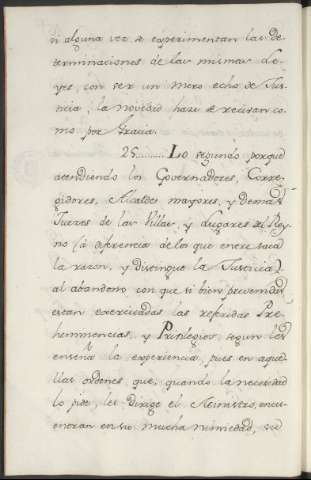 ñ alguna vez se experimentan las De
terminaciones de las mismas Le
yes, con ser un mero echo de Jus
ticia, la novedad hace se reciban co
mo por Gracia.
25........ Lo segundo porque
atendiendo los Governadores, Corre
gidores, Alcaldes mayores, y demas
Juezes de las Villas, y Lugares del Rey
no (á diferencia de los que entre sua
la razon, y distingue la Justicia)
al abandono con que si bien prevenidas
estan exercitadas las referidas Pre
heminencias, y Privilegios, segun les
enseña la experiencia, pues en aque
llas ordenes que, quando la necesidad
lo pide, les dirige el Ministro, encu
entran en su mucha nimiedad, su